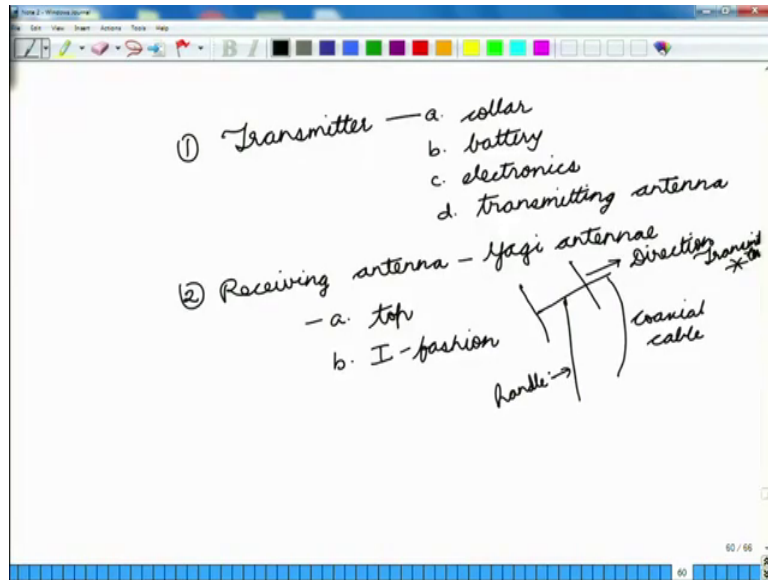 Note 2 - Windows Journal
File Edit View Insert Actions Tools Help
① Transmitter — a. collar
b. battery
c. electronics
d. transmitting antenna
② Receiving antenna - Yagi antennae
- a. top
b. I-fashion
Direction
coaxial
cable
handle
60 / 66
60